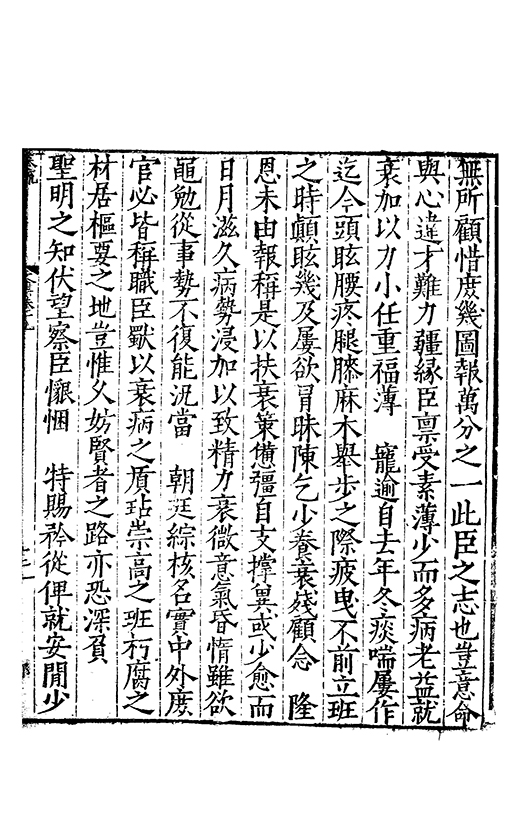 無所顧惜庻幾圖報萬分之一此臣之志也豈意命
與心違才難力疆緣臣禀受素薄少而多病老益就
衰加以力小任重福薄 寵逾自去年冬痰喘屢作
迄今頭眩腰疼腿膝麻木舉步之際疲曳不前立班
之時顛眩幾及屢欲冒昧陳乞少養衰殘顧念 隆
恩未由報稱是以扶衰策憊彊自支撑異或少愈而
日月滋久病勢浸加以致精力衰微意氣昏惰雖欲
黽勉從事勢不復能況當 朝廷綜核名實中外庻
官必皆稱職臣獸以衰病之質玷崇高之班朽腐之
材居樞要之地豈惟久妨賢者之路亦恐深負
聖明之知伏望察臣懇悃 特賜矜從俾就安閒少